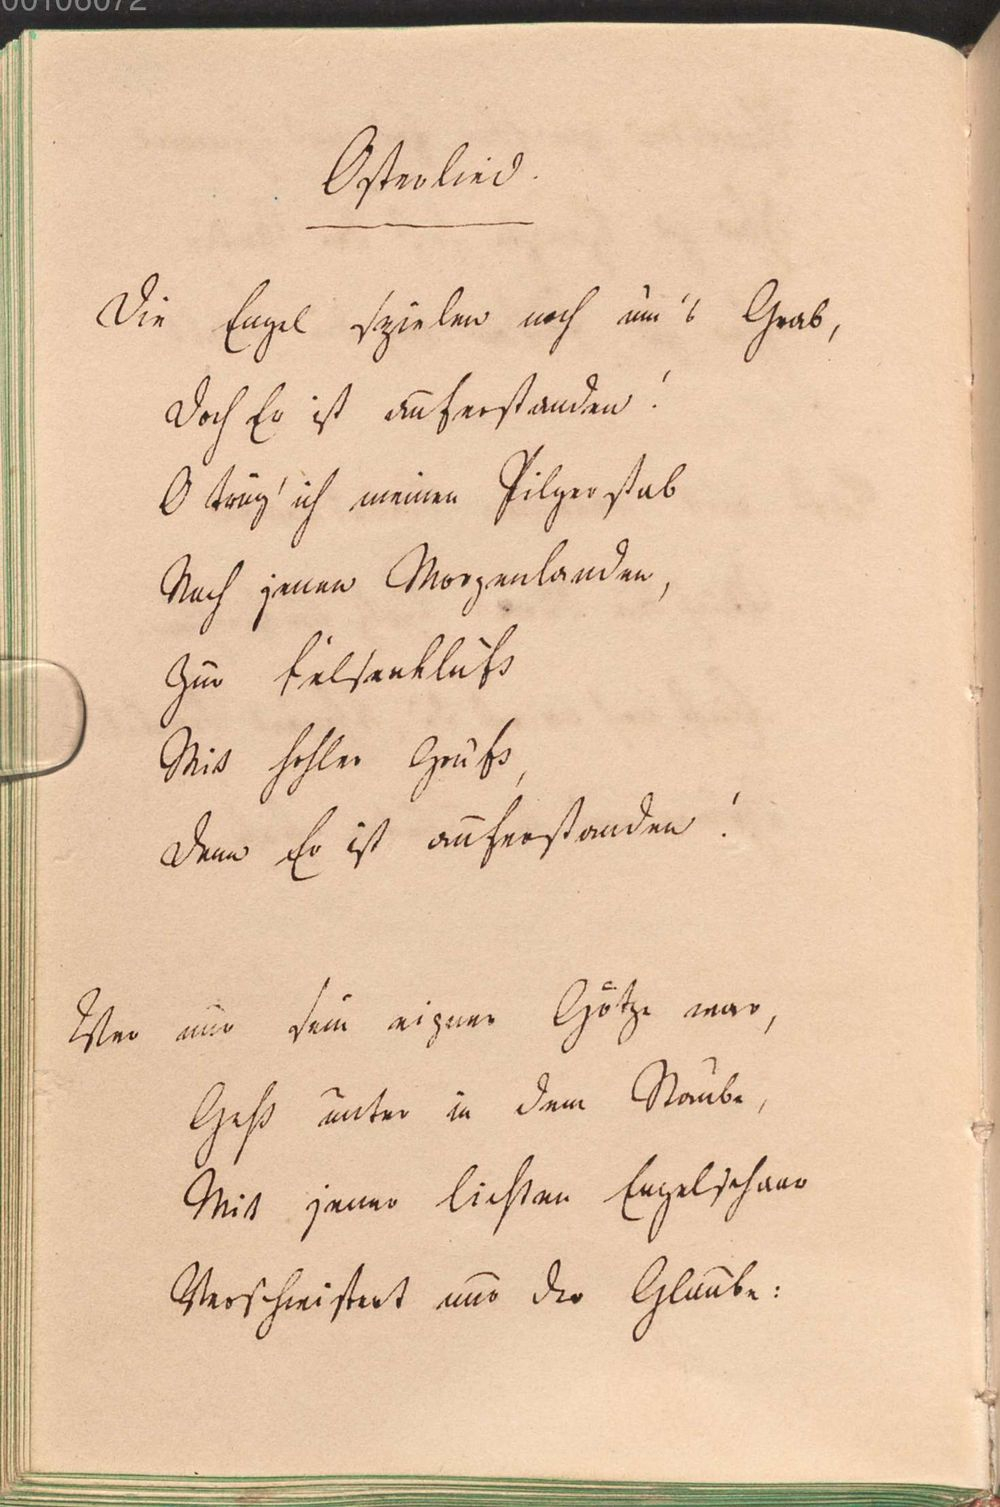 00106072
Osterlied.
Die Engel spielen noch um's Grab,
Doch Er ist auferstanden!
O trüg' ich meinen Pilgerstab
Nach jenen Morgenlanden,
Zur Felsenkluft
Mit hohler Gruft,
Denn Er ist auferstanden!
Wer nur sein eigner Götze war,
Geht unter in dem Staube,
Mit jener lichten Engelschaar
Verschwistert nur der Glaube: